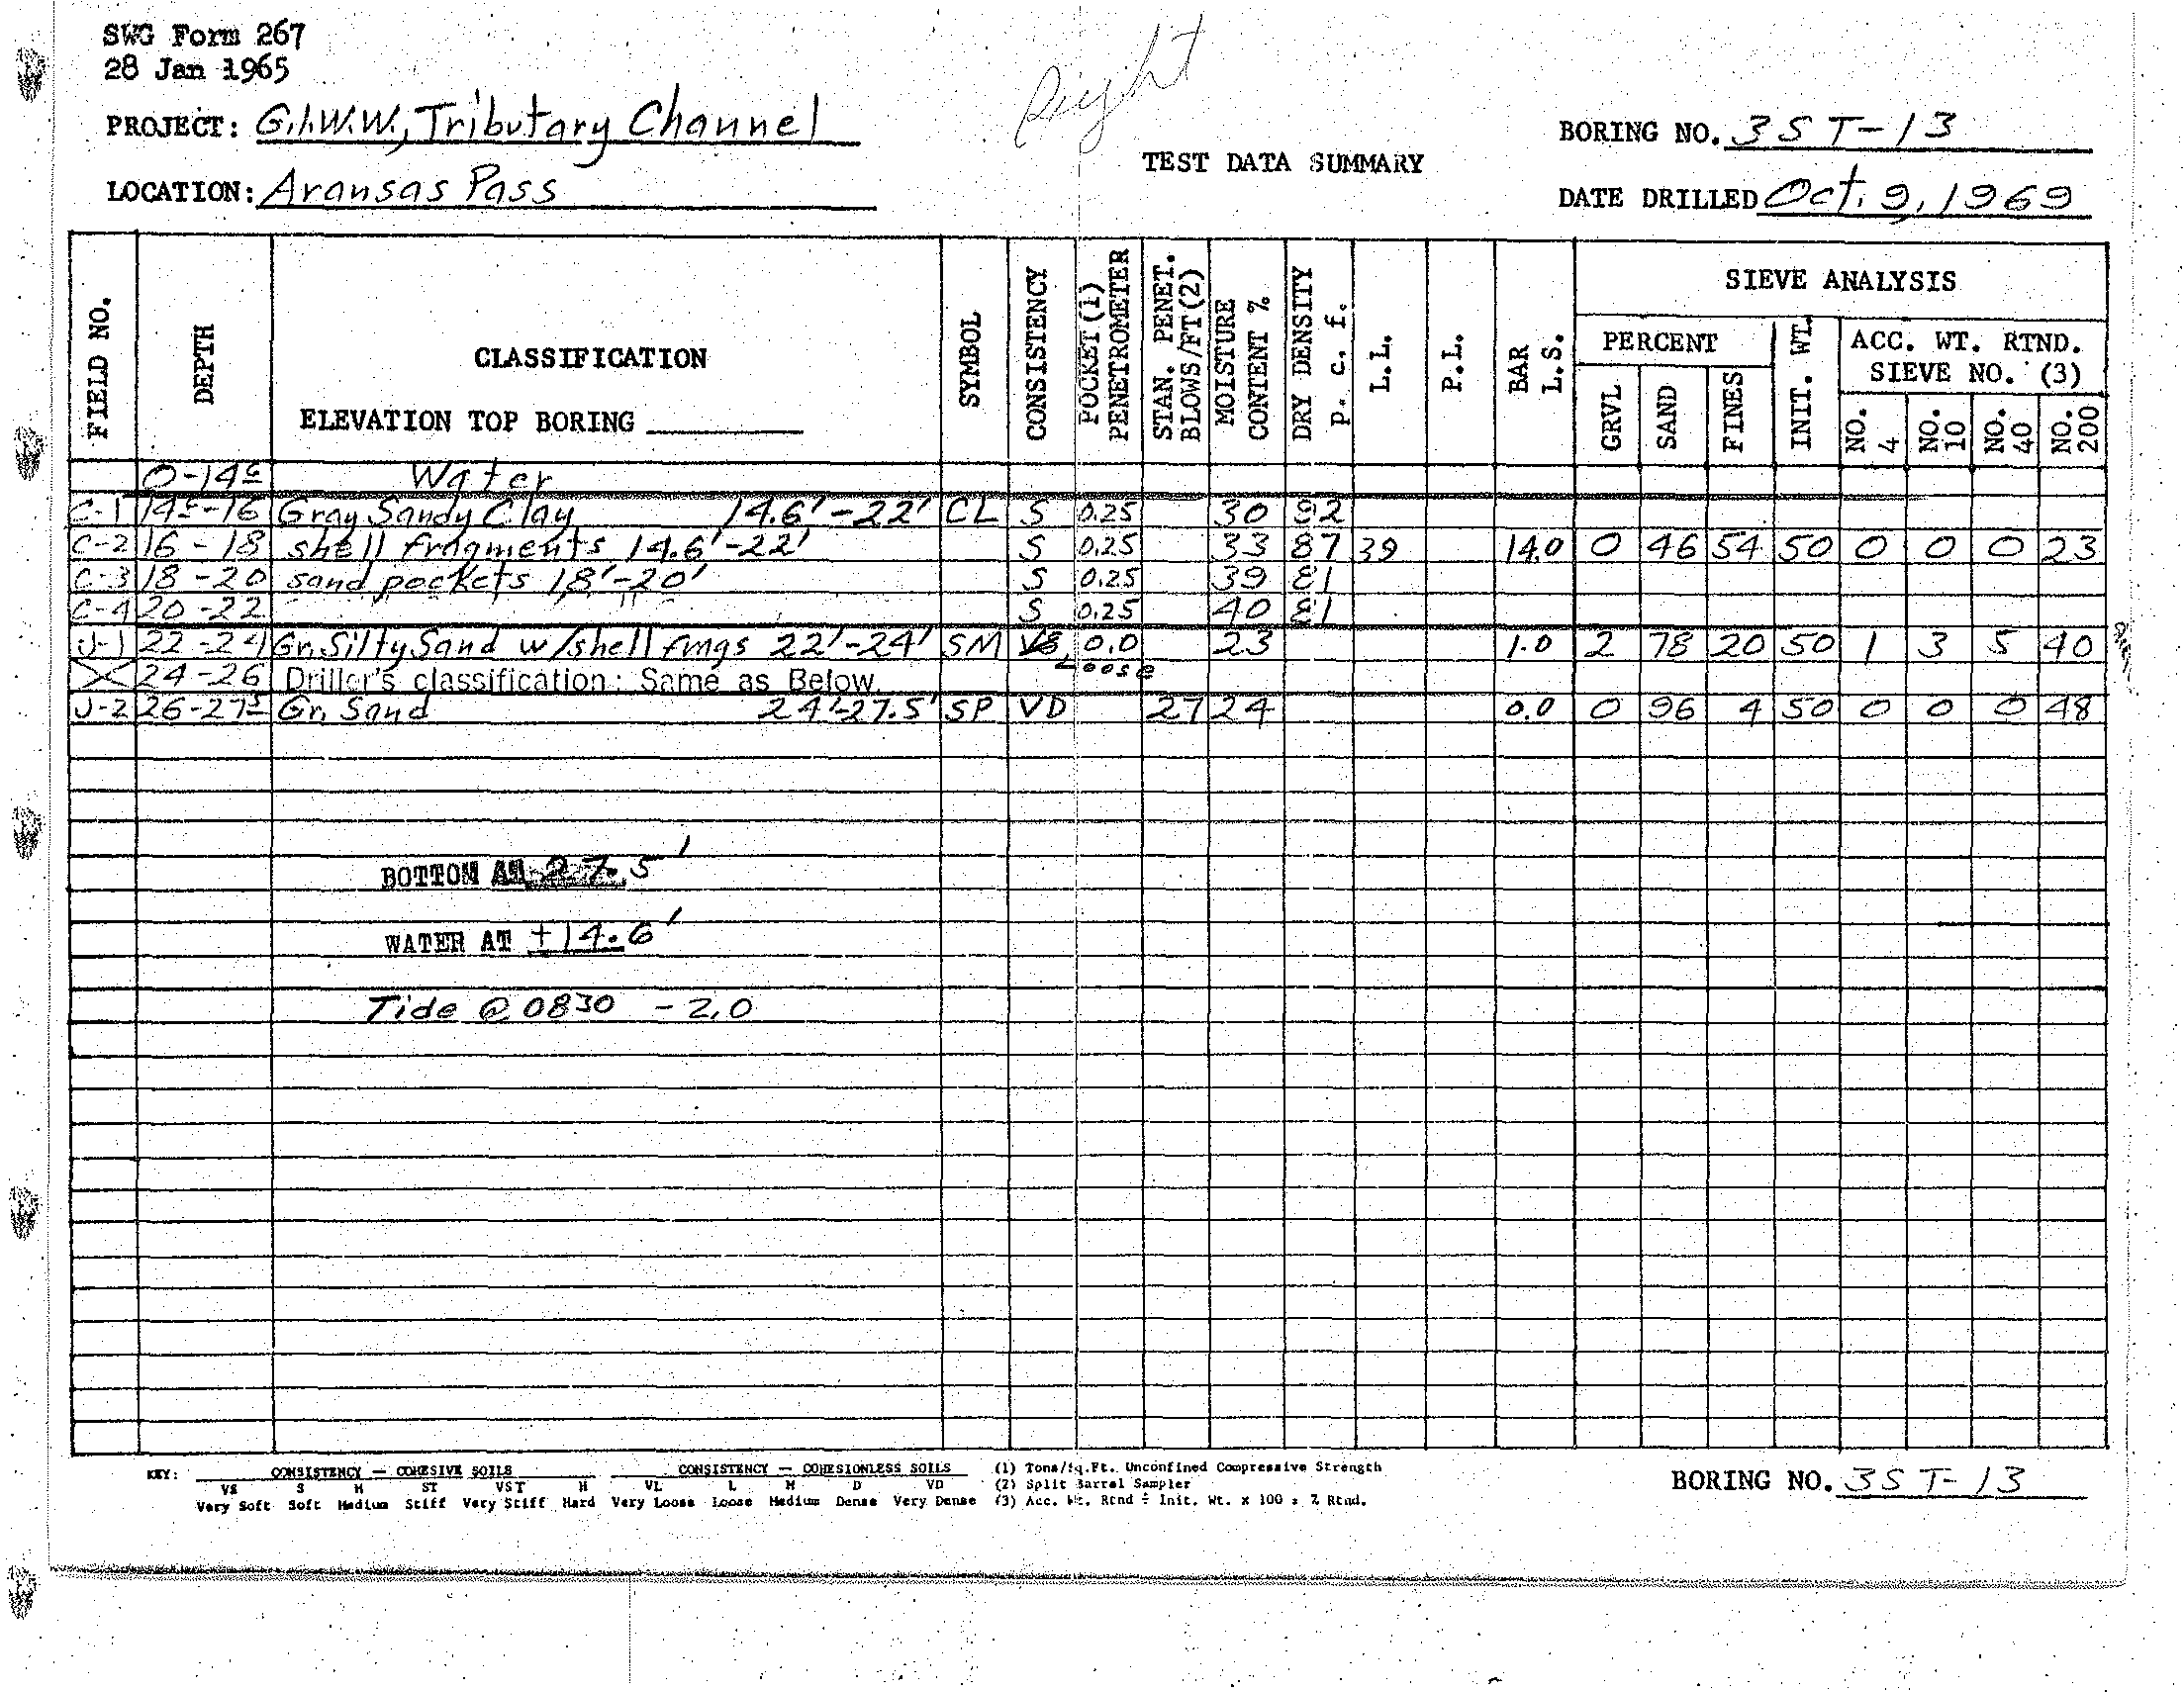 SWG Form 267
28 Jan 1965
Right
PROJECT: G.I.W.W., Tributary Channel
BORING NO. 3ST-13
TEST DATA SUMMARY
LOCATION: Aransas Pass
DATE DRILLED Oct. 9, 1969
FIELD NO. DEPTH CLASSIFICATION SYMBOL CONSISTENCY POCKET (1) PENETROMETER STAN. PENET. BLOWS/FT (2) MOISTURE CONTENT % DRY DENSITY p. c. f. L.L. P.L. BAR L.S. SIEVE ANALYSIS
PERCENT INIT. WT. ACC. WT. RTND. SIEVE NO. (3)
ELEVATION TOP BORING
GRVL SAND FINES NO. 4 NO. 10 NO. 40 NO. 200
0-14.6 Water
C-1 14.6-16 Gray Sandy Clay 14.6'-22' CL S 0.25 30 92
C-2 16-18 shell fragments 14.6'-22' S 0.25 33 87 39 14.0 0 46 54 50 0 0 0 23
C-3 18-20 sand pockets 18'-20' S 0.25 39 81
C-4 20-22 " S 0.25 40 81
J-1 22-24 Gr. Silty Sand w/shell frngs 22'-24' SM VS 0.0 23 1.0 2 78 20 50 1 3 5 40
Loose
24-26 Driller's classification: Same as Below.
J-2 26-27.5 Gr. Sand 24'-27.5' SP VD 27 24 0.0 0 96 4 50 0 0 0 48
BOTTOM AT 27.5'
WATER AT ±14.6'
Tide @ 0830 -2.0
KEY: CONSISTENCY — COHESIVE SOILS CONSISTENCY — COHESIONLESS SOILS (1) Tons/Sq.Ft. Unconfined Compressive Strength
VS S M ST VST H VL L M D VD (2) Split Barrel Sampler
Very Soft Soft Medium Stiff Very Stiff Hard Very Loose Loose Medium Dense Very Dense (3) Acc. Wt. Rtnd ÷ Init. Wt. x 100 = % Rtnd.
BORING NO. 3ST-13